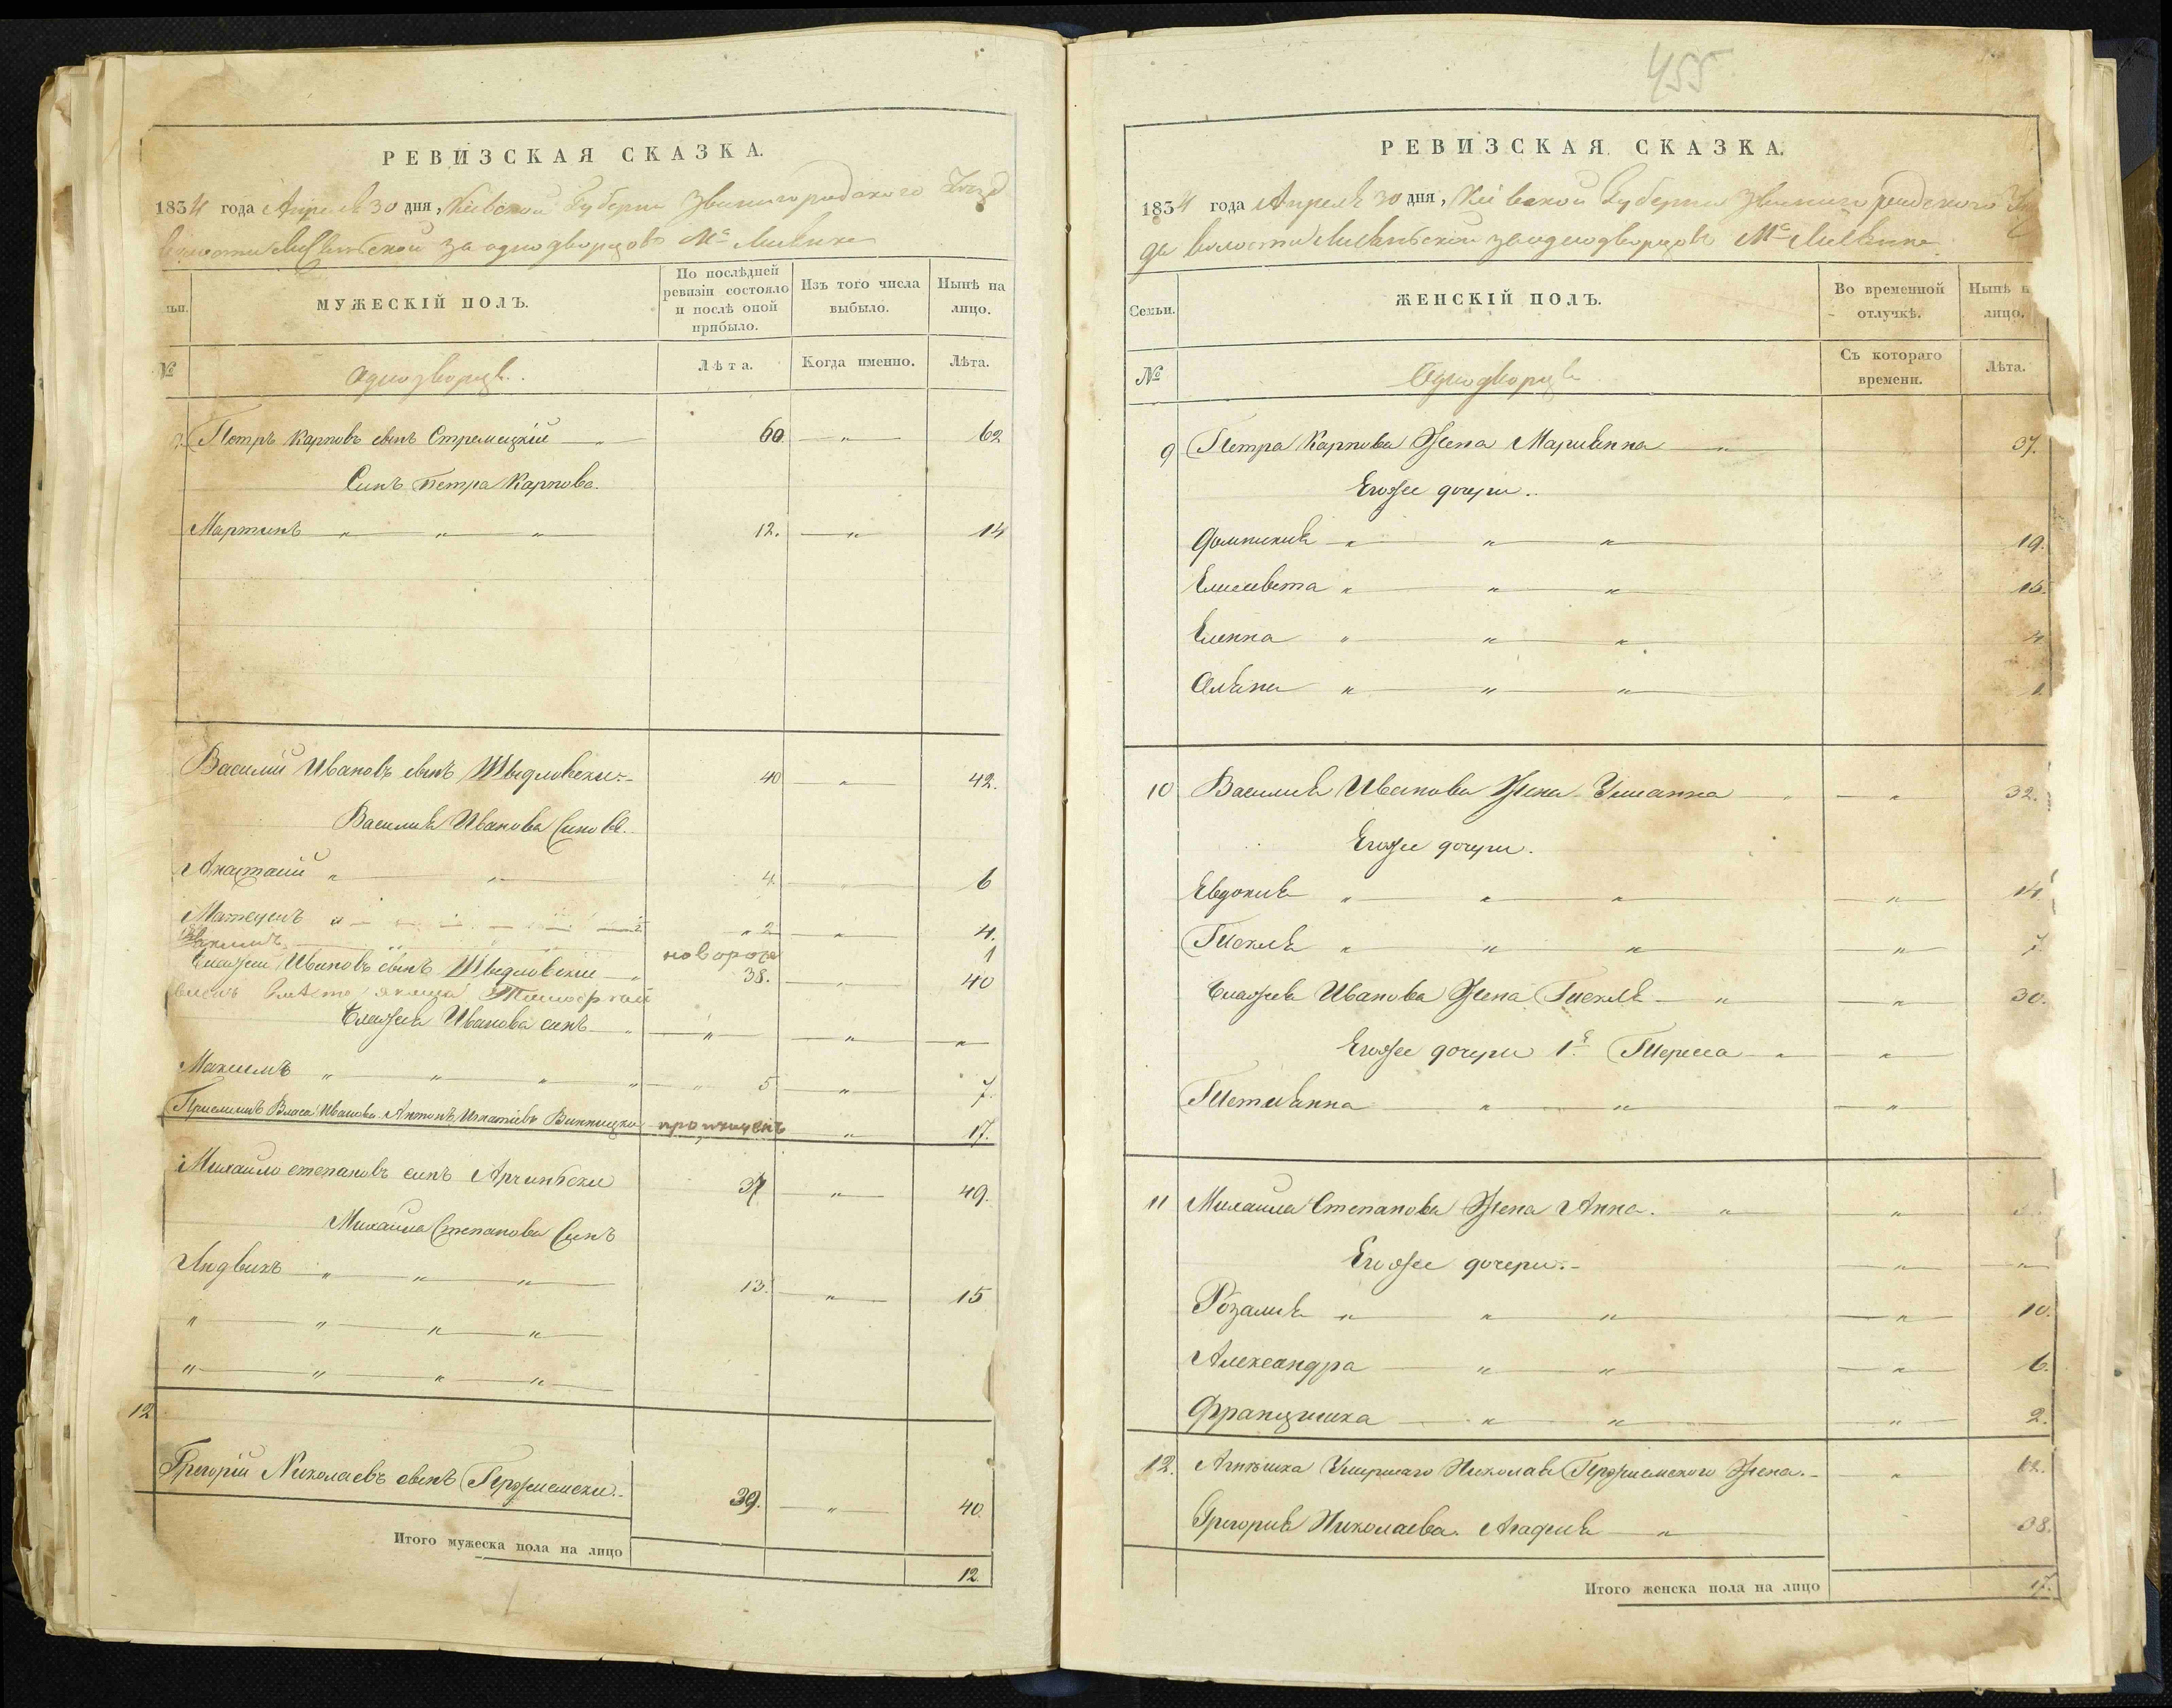 РЕВИЗСКАЯ СКАЗКА.
1834 года Апреля 30 дня, Киевской Губерни Звенигородского Уезд
волости за однодворцовъ Мс
МУЖЕСКІЙ ПОЛЪ.
По послѣдней ревизіи состояло и послѣ оной прибыло.
Изъ того числа выбыло.
Нынѣ на лицо.
№
Однодворцы.
Лѣта.
Когда именно.
Лѣта.
Петръ Карповъ сынъ Стремецкій 60 62
Синъ Петра Карпова.
Мартинъ 12. 14
Василий Ивановъ сынъ Шведловски 40 42.
Василия Иванова Синове.
Анастасий 4 6
Матеушъ 2 4.
новорож 1
Ивановъ сынъ Шведловскии 38. 40
вместо
Иванова синъ
Максимъ 5 7.
Власа Иванова Антонъ Игнатиевъ Винницки пропущенъ 17.
Михаило степановъ синъ 37 49.
Михаила Степанова Синъ
Людвикъ 13. 15
12
Григорій Николаевъ сынъ 39. 40.
Итого мужеска пола на лицо 12.
455
РЕВИЗСКАЯ СКАЗКА.
1834 года Апреля 30 дня, Киевской Губерни Звенигородского Уе
да волости за однодворцовъ Мс
Семьи.
ЖЕНСКІЙ ПОЛЪ.
Во временной отлучкѣ.
Нынѣ н лицо.
№
Однодворцы
Съ котораго времени.
Лѣта.
9 Петра Карпова Жена Марианна 37.
Егоже дочери.
Домникия 19.
Елисавета 16.
Еленна 4
1.
10 Василия Иванова Жена Улианна 32.
Егоже дочери.
Евдокия 14
Текля 7.
Иванова Жена Текля 30.
Егоже дочери 1я Тереса
Петианна
11 Михаила Степанова Жена Анна.
Егоже дочери.
Розалия 10.
Александра 6.
Францишка 2.
12. Агнешка Умершаго Николая Жена. 62.
Григория Николаева Агафия 38.
Итого женска пола на лицо 17.